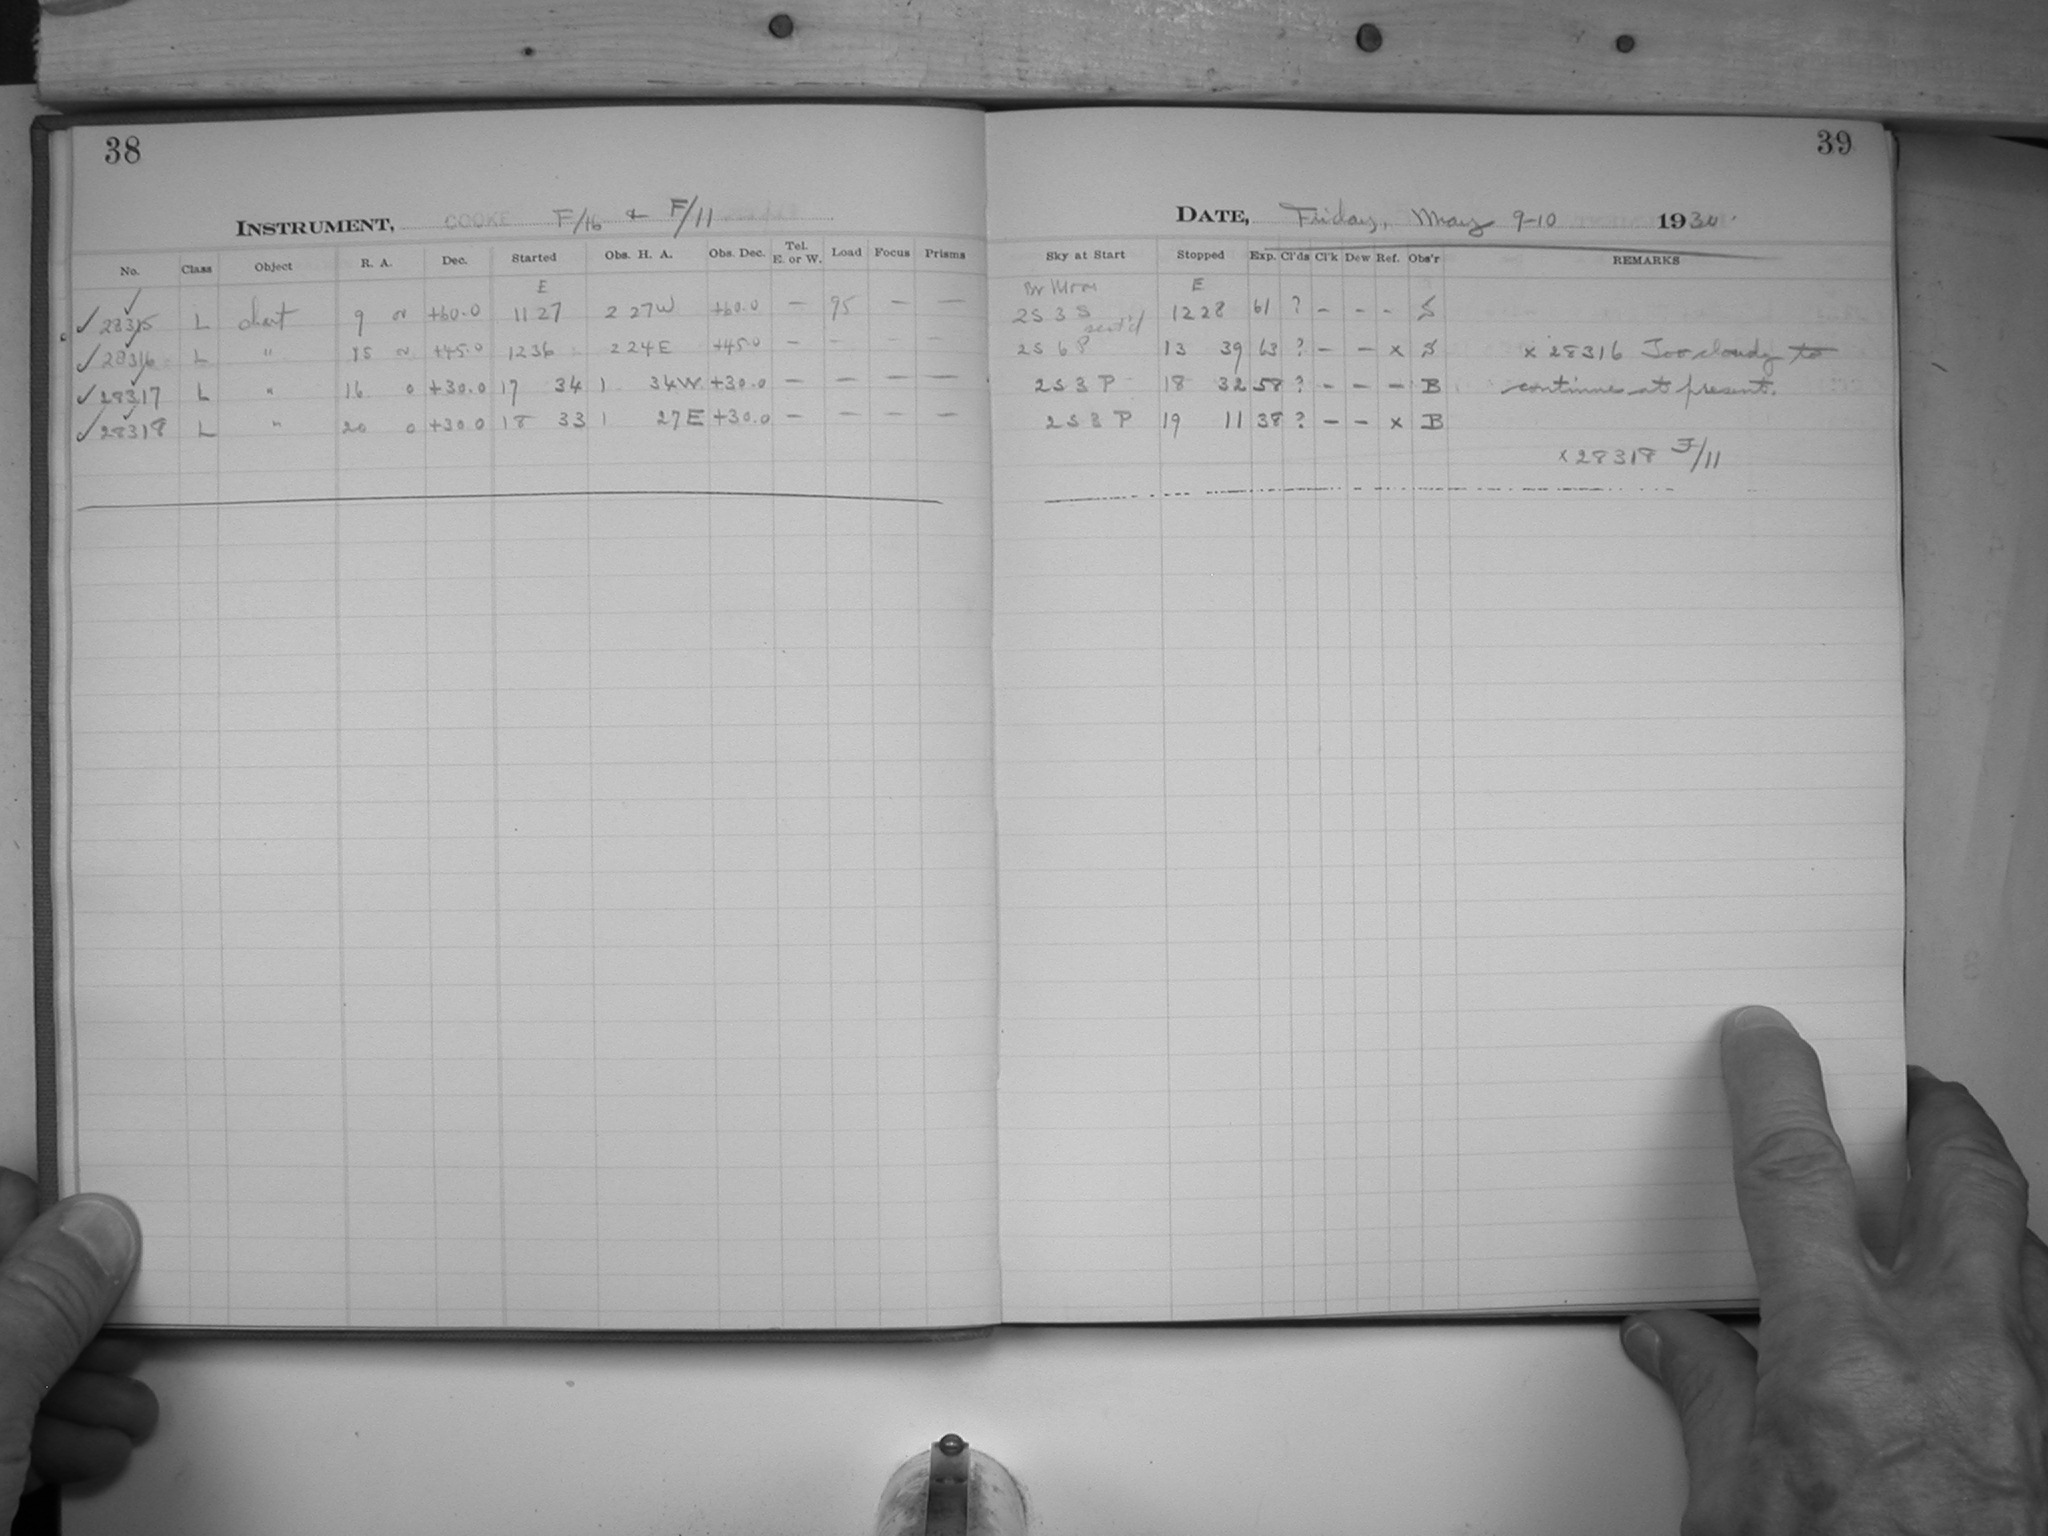 38
INSTRUMENT, COOKE F/16 & F/11
No. Class Object R. A. Dec. Started Obs. H. A. Obs. Dec. Tel. E. or W. Load Focus Prisms
E
✓ 28315 L chart 9 0 +60.0 11 27 2 27W +60.0 — 95 — —
✓ 28316 L " 15 0 +45.0 12 36 2 24E +45.0 — — — —
✓ 28317 L " 16 0 +30.0 17 34 1 34W +30.0 — — — —
✓ 28318 L " 20 0 +30.0 18 33 1 27E +30.0 — — — —
39
DATE, Friday, May 9-10 1930
Sky at Start Stopped Exp. Cl'ds Cl'k Dew Ref. Obs'r REMARKS
Br Moon E
2S 3 S 12 28 61 ? - - - S
scat'd
2S 6 P 13 39 63 ? - - x S x 28316 Too cloudy to
2S 3 P 18 32 58 ? - - - B continue at present.
2S 3 P 19 11 38 ? - - x B
x 28318 F/11